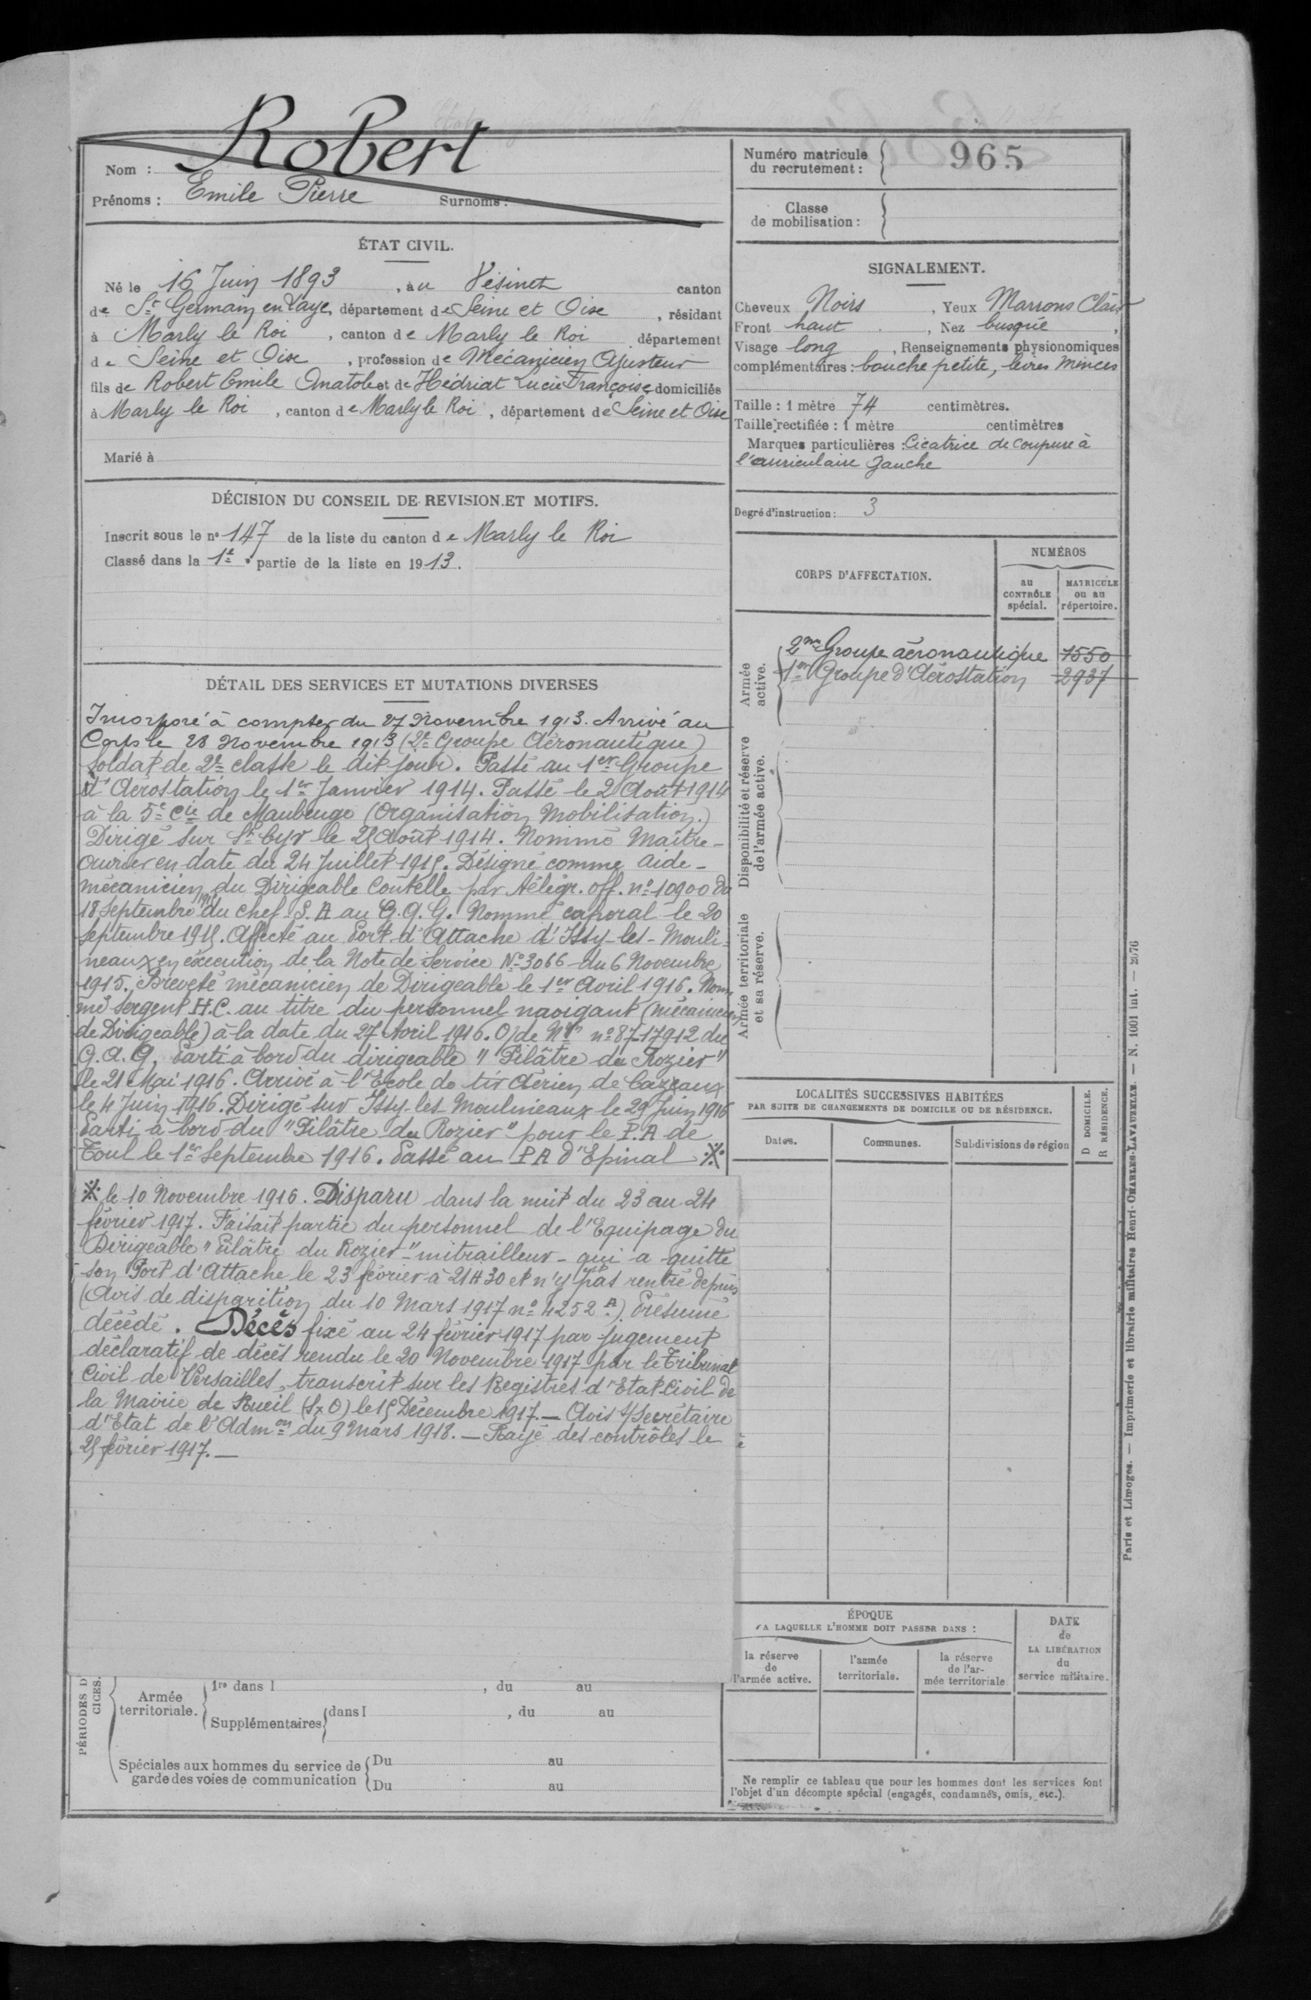 Robert
Nom :
Prénoms : Emile Pierre Surnoms :
Numéro matricule du recrutement : 965
Classe de mobilisation :
ÉTAT CIVIL.
Né le 16 Juin 1893, à u Vésinet canton
de St Germain en Laye, département de Seine et Oise, résidant
à Marly le Roi, canton de Marly le Roi département
de Seine et Oise, profession de Mécanicien Ajusteur
fils de Robert Emile Anatole et de Hédriat Lucie Françoise domiciliés
à Marly le Roi, canton de Marly le Roi, département de Seine et Oise
Marié à
SIGNALEMENT.
Cheveux Noirs, Yeux Marrons Clair
Front haut, Nez busqué,
Visage long, Renseignements physionomiques
complémentaires : bouche petite, lèvres minces
Taille : 1 mètre 74 centimètres.
Taille rectifiée : 1 mètre centimètres
Marques particulières : Cicatrice de coupure à
l'auriculaire gauche
Degré d'instruction : 3
DÉCISION DU CONSEIL DE REVISION ET MOTIFS.
Inscrit sous le n° 147 de la liste du canton de Marly le Roi
Classé dans la 1e partie de la liste en 1913.
CORPS D'AFFECTATION.
NUMÉROS
au CONTRÔLE spécial.
MATRICULE ou au répertoire.
Armée active.
2me Groupe aéronautique 1550
1er Groupe d'Aérostation 2937
Disponibilité et réserve de l'armée active.
Armée territoriale et sa réserve.
DÉTAIL DES SERVICES ET MUTATIONS DIVERSES
Incorporé à compter du 27 Novembre 1913. Arrivé au
Corps le 28 Novembre 1913 (2e Groupe Aéronautique)
Soldat de 2e classe le dit jour. Passé au 1er Groupe
d'Aérostation le 1er Janvier 1914. Passé le 2 Août 1914
à la 5e Cie de Maubeuge (Organisation Mobilisation.)
Dirigé sur St Cyr le 28 Août 1914. Nommé Maître-
Ouvrier en date du 24 Juillet 1915. Désigné comme aide-
mécanicien du Dirigeable Coutelle par télégr. off. n° 10900 du
18 Septembre 1915 du chef S. A au G. Q. G. Nommé caporal le 20
Septembre 1915. Affecté au Port d'Attache d'Issy-les-Mouli-
neaux en exécution de la Note de Service N° 3066 du 6 Novembre
1915. Breveté mécanicien de Dirigeable le 1er Avril 1916. Nom
mé Sergent H.C. au titre du personnel navigant (mécanicien
de Dirigeable) à la date du 27 Avril 1916. O/ de Non n° 87-17912 du
G. Q. G. Parti à bord du dirigeable "Pilâtre du Rozier"
le 21 Mai 1916. Arrivé à l'Ecole de tir Aérien de Cazaux
le 4 Juin 1916. Dirigé sur Issy les Moulineaux le 29 Juin 1916
Parti à bord du "Pilâtre du Rozier" pour le P. A de
Toul le 1er Septembre 1916. Passé au PA d'Epinal ※
※ le 10 Novembre 1916. Disparu dans la nuit du 23 au 24
février 1917. Faisait partie du personnel de l'Equipage du
Dirigeable "Pilâtre du Rozier" - mitrailleur - qui a quitté
son Port d'Attache le 23 février à 21H30 et n'y est pas rentré depuis
(Avis de disparition du 10 Mars 1917 n° 4252 A). Présumé
décédé. Décès fixé au 24 février 1917 par Jugement
déclaratif de décès rendu le 20 Novembre 1917 par le Tribunal
Civil de Versailles, transcrit sur les Registres d'Etat Civil de
la Mairie de Rueil (S x O) le 15 Décembre 1917. — Avis S/Secrétaire
d'Etat de l'Admon du 9 Mars 1918. — Rayé des contrôles le
25 février 1917. —
LOCALITÉS SUCCESSIVES HABITÉES
PAR SUITE DE CHANGEMENTS DE DOMICILE OU DE RÉSIDENCE.
Dates. Communes. Subdivisions de région D DOMICILE. R RÉSIDENCE.
PÉRIODES D
CICES.
Armée territoriale.
1re dans l , du au
Supplémentaires dans l , du au
Spéciales aux hommes du service de garde des voies de communication
Du au
Du au
ÉPOQUE
A LAQUELLE L'HOMME DOIT PASSER DANS :
la réserve de l'armée active.
l'armée territoriale.
la réserve de l'armée territoriale
DATE de LA LIBÉRATION du service militaire.
Ne remplir ce tableau que pour les hommes dont les services font
l'objet d'un décompte spécial (engagés, condamnés, omis, etc.).
Paris et Limoges. — Imprimerie et librairie militaires Henri CHARLES-LAVAUZELLE — N. 1001 int. — 2676